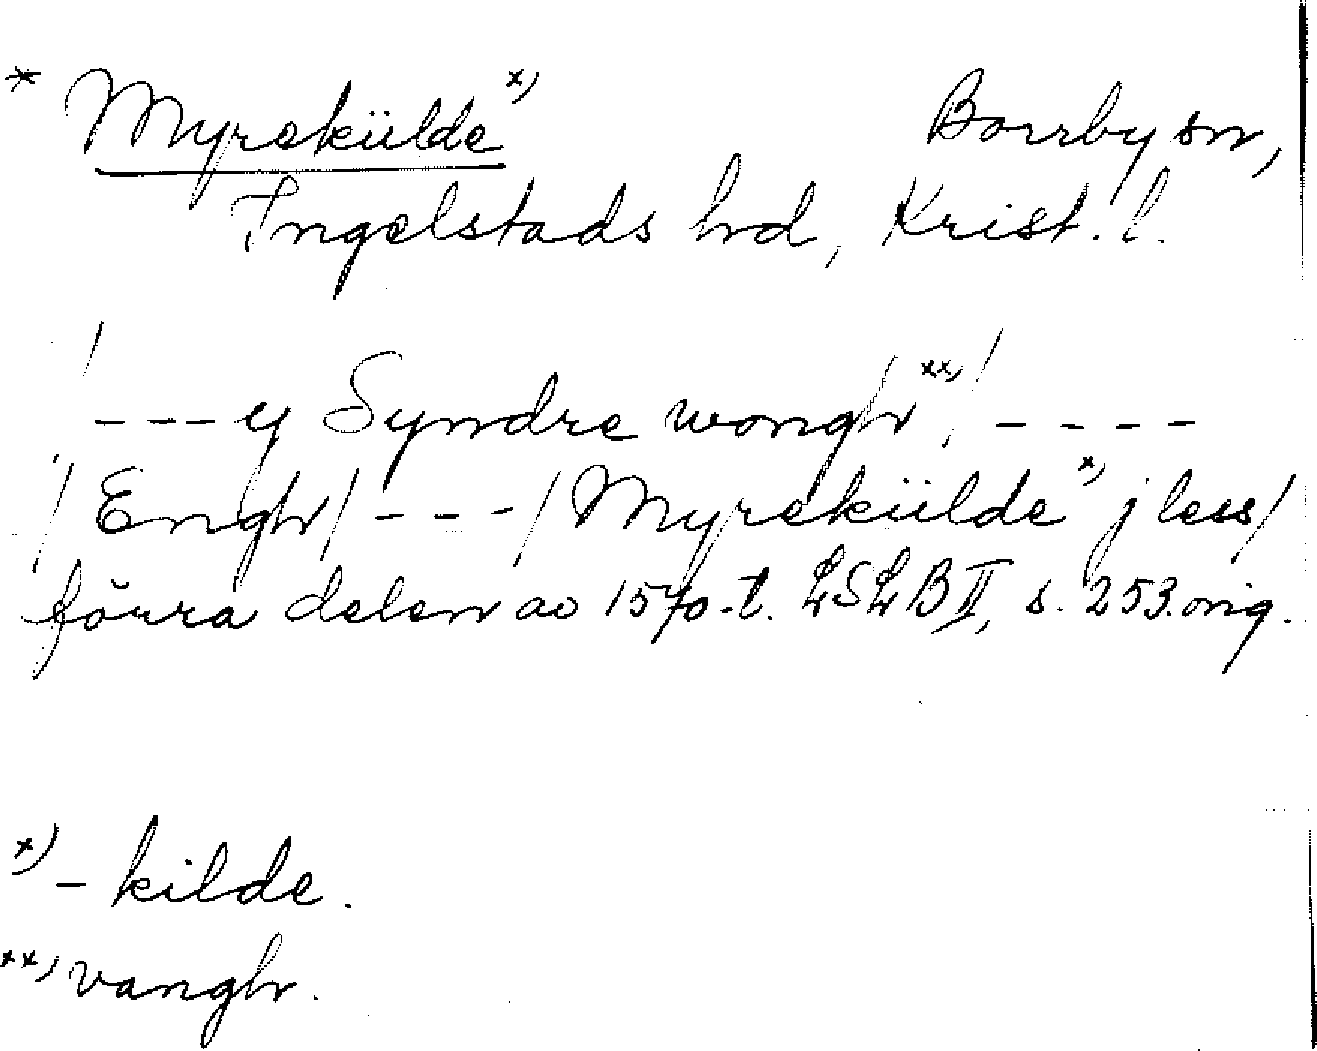 * Myrekülde x)   Borrby sn,
Ingelstads hd, Krist. l.
/---y Syndre wongh xx)/----
/Engh/---/Myrekülde x) j less/
förra delen av 1570-t. LSLB II, s. 253. orig.
x) -kilde.
xx) vangh.